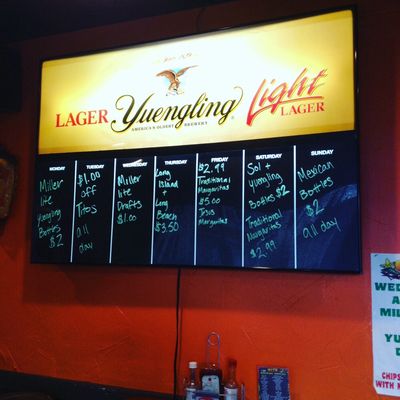 LAGER Yuengling Light LAGER
AMERICA'S OLDEST BREWERY
MONDAY
Miller
lite
Yuengling
Bottles
$2
TUESDAY
$1.00
off
Titos
all
day
WEDNESDAY
Miller
lite
Drafts
$1.00
THURSDAY
Long
Island
+
Long
Beach
$3.50
FRIDAY
$2.99
Traditional
Margaritas
$5.00
Margaritas
SATURDAY
Sol +
Yuengling
Bottles $2
Traditional
Margaritas
$2.99
SUNDAY
Mexican
Bottles
$2
all day
WED
A
MIL
YU
D
CHIPS
WITH